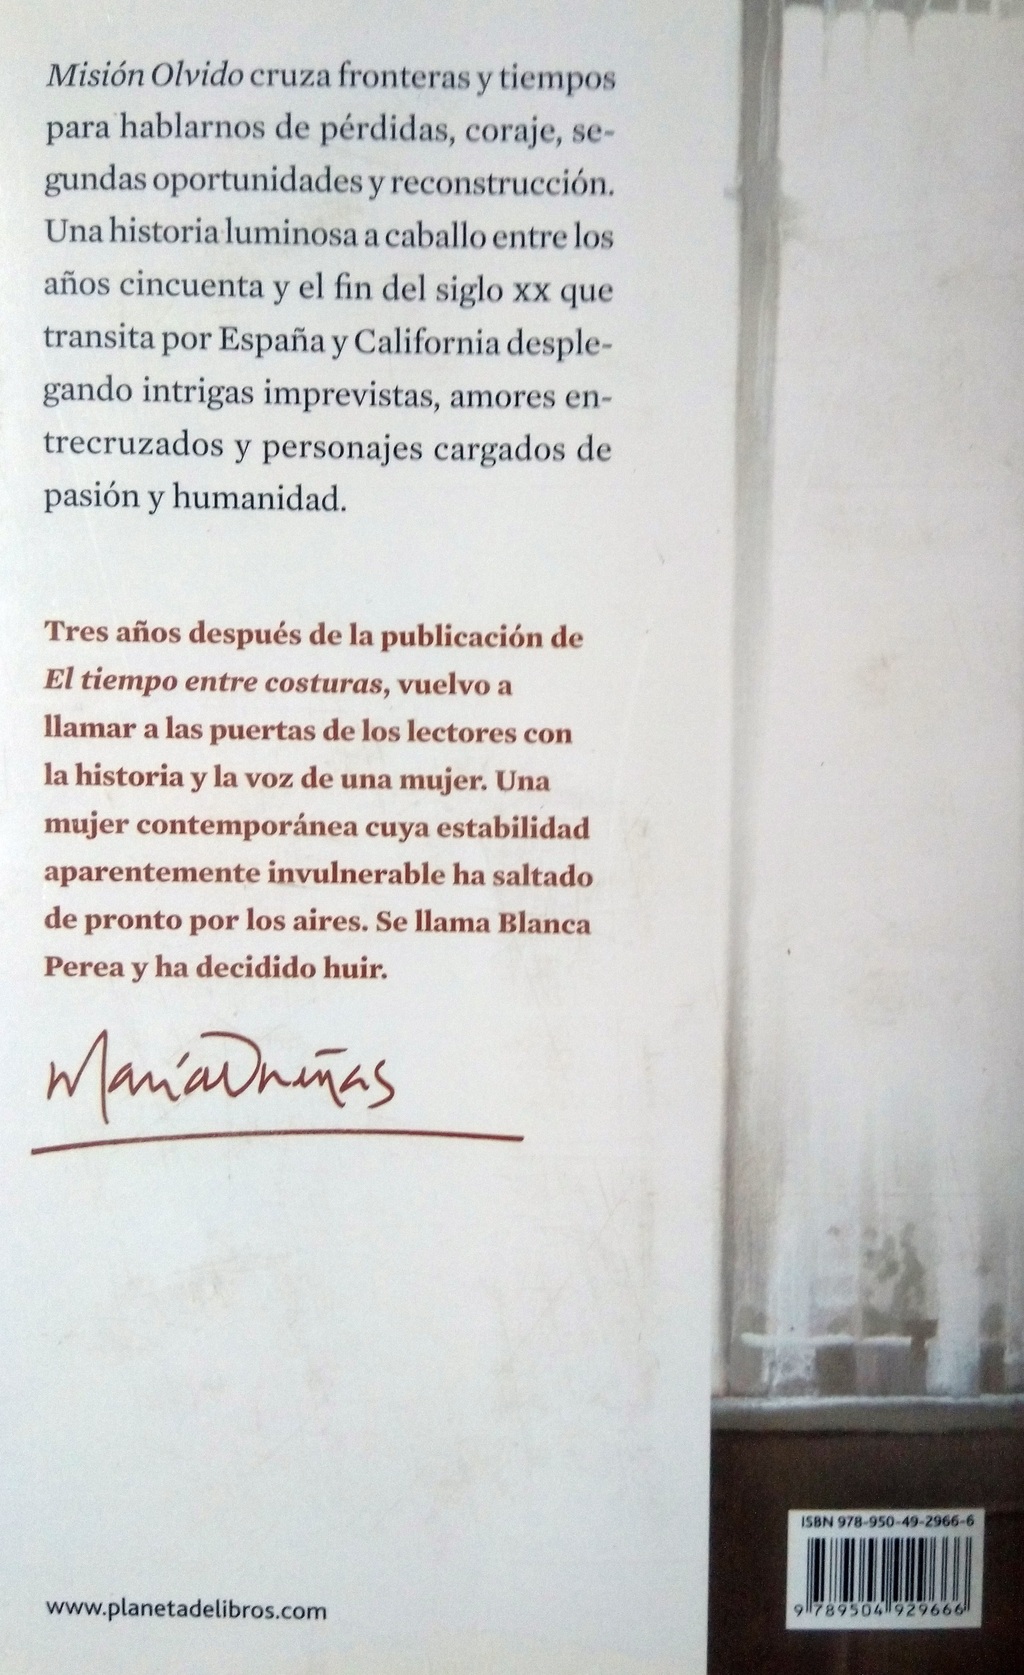 Misión Olvido cruza fronteras y tiempos
para hablarnos de pérdidas, coraje, se-
gundas oportunidades y reconstrucción.
Una historia luminosa a caballo entre los
años cincuenta y el fin del siglo XX que
transita por España y California desple-
gando intrigas imprevistas, amores en-
trecruzados y personajes cargados de
pasión y humanidad.
Tres años después de la publicación de
El tiempo entre costuras, vuelvo a
llamar a las puertas de los lectores con
la historia y la voz de una mujer. Una
mujer contemporánea cuya estabilidad
aparentemente invulnerable ha saltado
de pronto por los aires. Se llama Blanca
Perea y ha decidido huir.
María Dueñas
www.planetadelibros.com
ISBN 978-950-49-2966-6
9 789504 929666